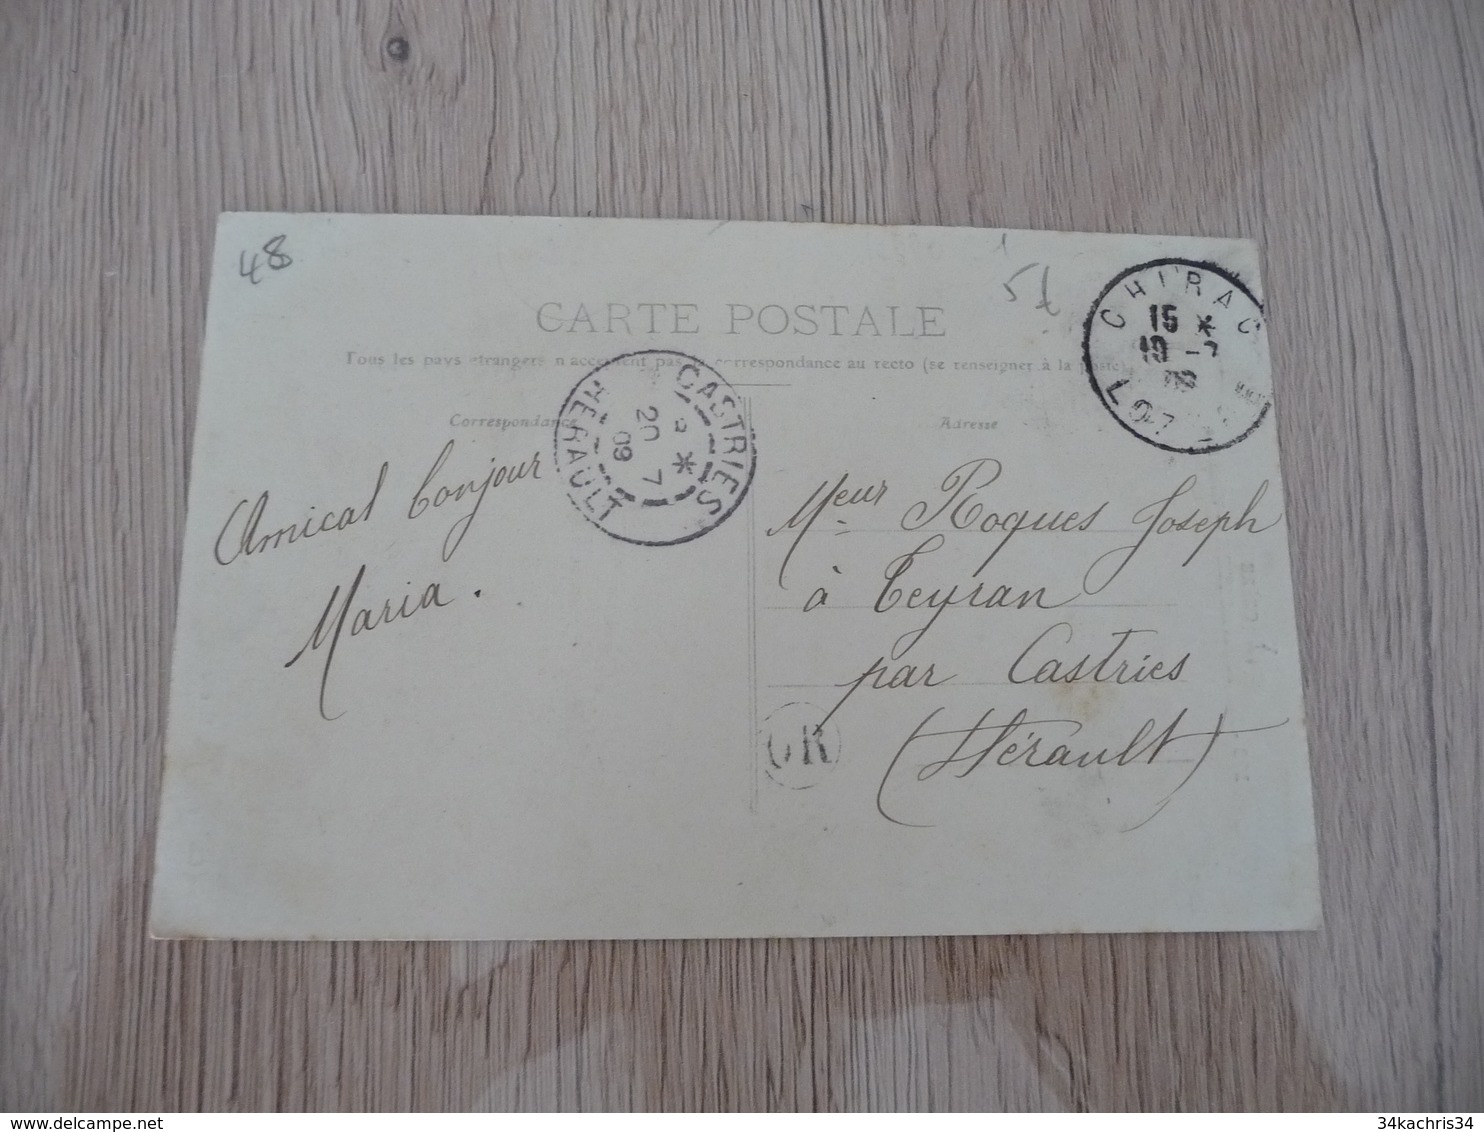 48
CARTE POSTALE
Tous les pays étrangers n'acceptent pas la correspondance au recto (se renseigner à la poste)
Correspondance
Adresse
CHIRAC
15 *
19 -7
09
LOZ
CASTRIES
20 7
09
HERAULT
Amical bonjour
Maria.
Meur Roques Joseph
à Teyran
par Castries
(Hérault)
OR
delcampe.net
34kachris34